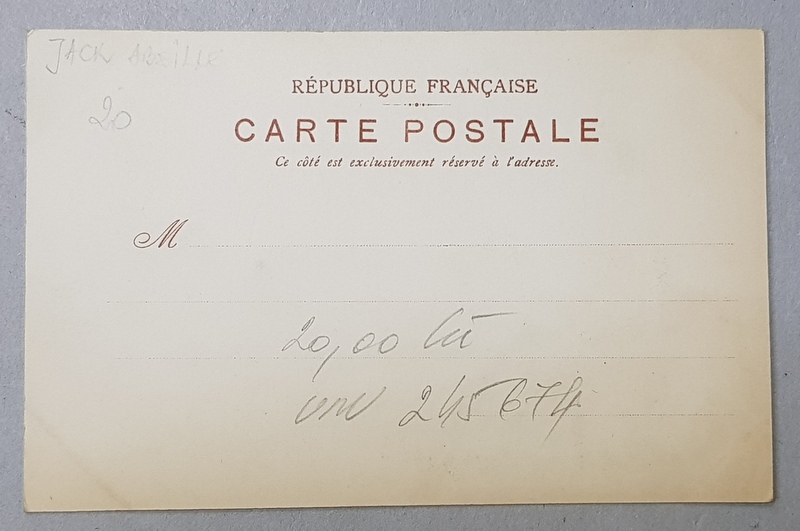 JACK ABEILLE
20
RÉPUBLIQUE FRANÇAISE
CARTE POSTALE
Ce côté est exclusivement réservé à l'adresse.
M
20,00
245674